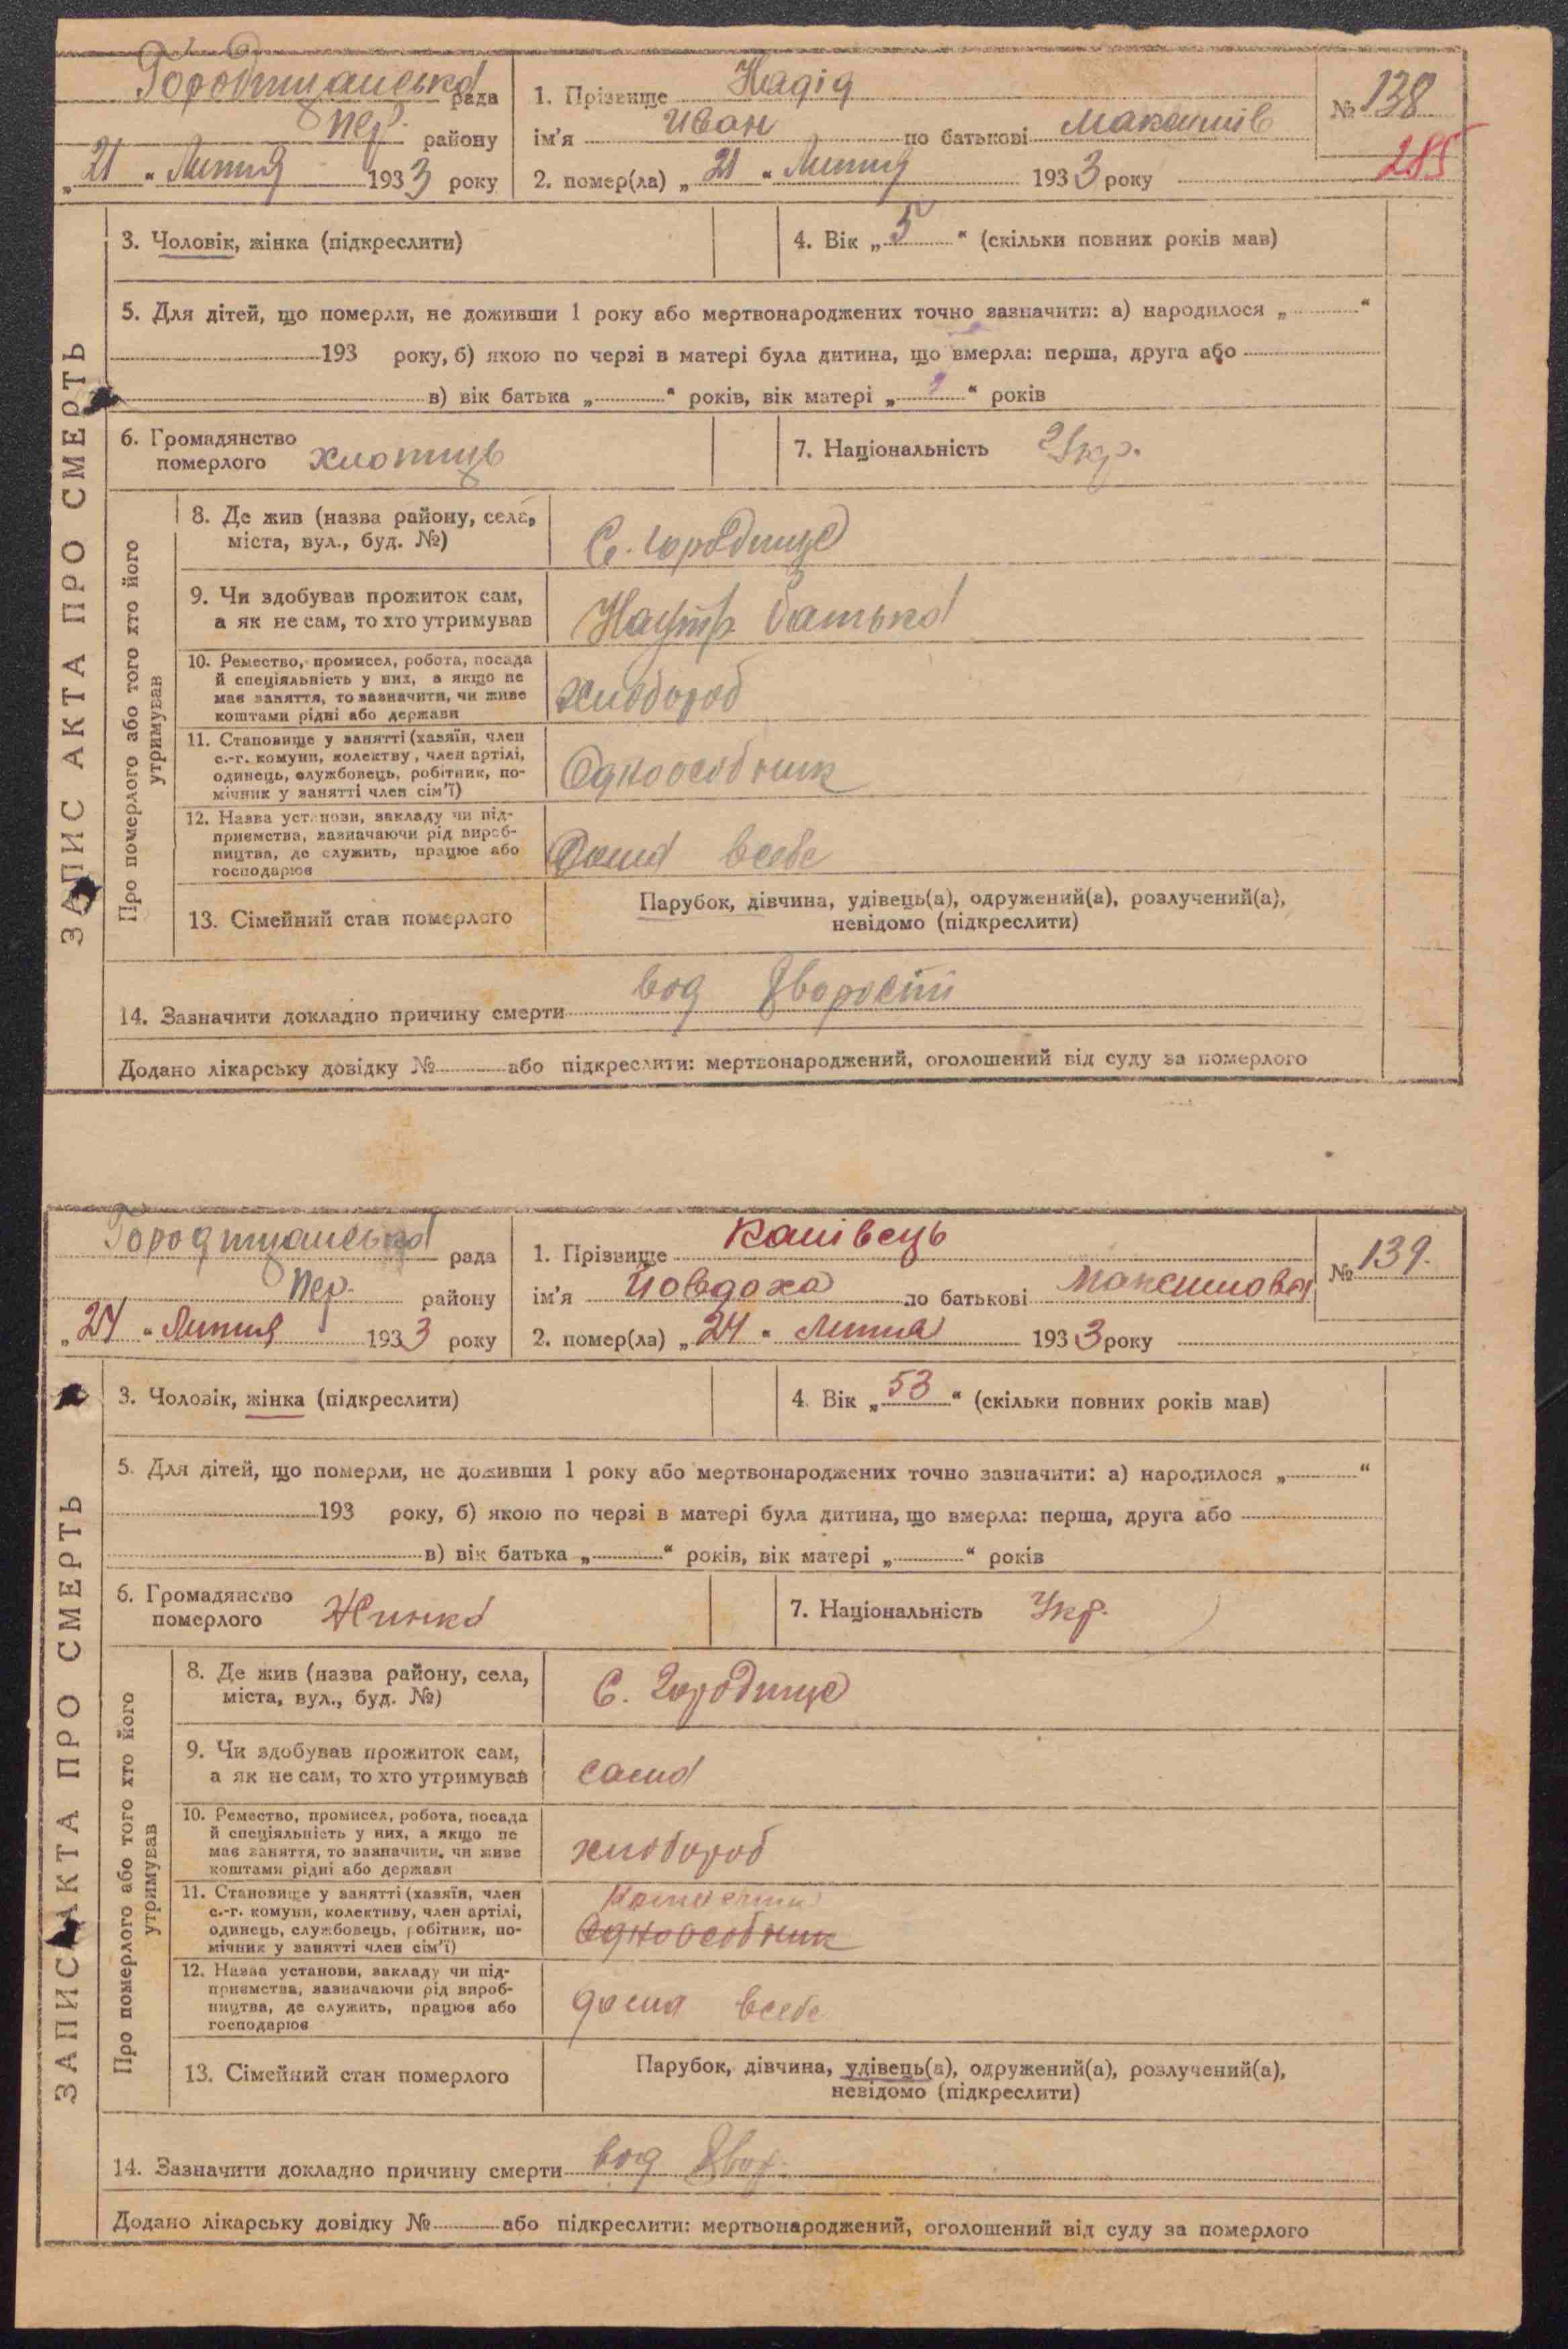 Городищанська рада
Пер. району
„21“ Липня 1933 року
1. Прізвище Надід
ім'я Иван по батькові Максимів
2. помер(ла) „21“ Липня 1933 року
№ 138
285
ЗАПИС АКТА ПРО СМЕРТЬ
3. Чоловік, жінка (підкреслити)
4. Вік „5“ (скільки повних років мав)
5. Для дітей, що померли, не доживши 1 року або мертвонароджених точно зазначити: а) народилося „ “
193 року, б) якою по черзі в матері була дитина, що вмерла: перша, друга або
в) вік батька „ “ років, вік матері „ “ років
6. Громадянство
померлого хлопець
7. Національність Укр.
Про померлого або того хто його
утримував
8. Де жив (назва району, села,
міста, вул., буд. №)
С. Городище
9. Чи здобував прожиток сам,
а як не сам, то хто утримував
На утр. батька
10. Ремество, промисел, робота, посада
й спеціяльність у них, а якщо не
має заняття, то зазначити, чи живе
коштами рідні або держави
хлібороб
11. Становище у занятті (хазяїн, член
с.-г. комуни, колектву, член артілі,
одинець, службовець, робітник, по-
мічник у занятті член сім'ї)
Одноосібник
12. Назва установи, закладу чи під-
приємства, зазначаючи рід вироб-
ництва, де служить, працює або
господарює
Дома всебе
13. Сімейний стан померлого
Парубок, дівчина, удівець(а), одружений(а), розлучений(а),
невідомо (підкреслити)
14. Зазначити докладно причину смерти вод Хворости
Додано лікарську довідку № або підкреслити: мертвонароджений, оголошений від суду за померлого
Городищанська рада
Пер. району
„24“ Липня 1933 року
1. Прізвище Канівець
ім'я Йовдоха по батькові Максимова
2. помер(ла) „24“ Липна 1933 року
№ 139.
ЗАПИС АКТА ПРО СМЕРТЬ
3. Чоловік, жінка (підкреслити)
4. Вік „53“ (скільки повних років мав)
5. Для дітей, що померли, не доживши 1 року або мертвонароджених точно зазначити: а) народилося „ “
193 року, б) якою по черзі в матері була дитина, що вмерла: перша, друга або
в) вік батька „ “ років, вік матері „ “ років
6. Громадянство
померлого Жинка
7. Національність Укр.
Про померлого або того хто його
утримував
8. Де жив (назва району, села,
міста, вул., буд. №)
С. Городище
9. Чи здобував прожиток сам,
а як не сам, то хто утримував
сама
10. Ремество, промисел, робота, посада
й спеціяльність у них, а якщо не
має заняття, то зазначити, чи живе
коштами рідні або держави
хлібороб
11. Становище у занятті (хазяїн, член
с.-г. комуни, колективу, член артілі,
одинець, службовець, робітник, по-
мічник у занятті член сім'ї)
Одноосібник
12. Назва установи, закладу чи під-
приємства, зазначаючи рід вироб-
ництва, де служить, працює або
господарює
дома всебе
13. Сімейний стан померлого
Парубок, дівчина, удівець(а), одружений(а), розлучений(а),
невідомо (підкреслити)
14. Зазначити докладно причину смерти вод Хвор.
Додано лікарську довідку № або підкреслити: мертвонароджений, оголошений від суду за померлого